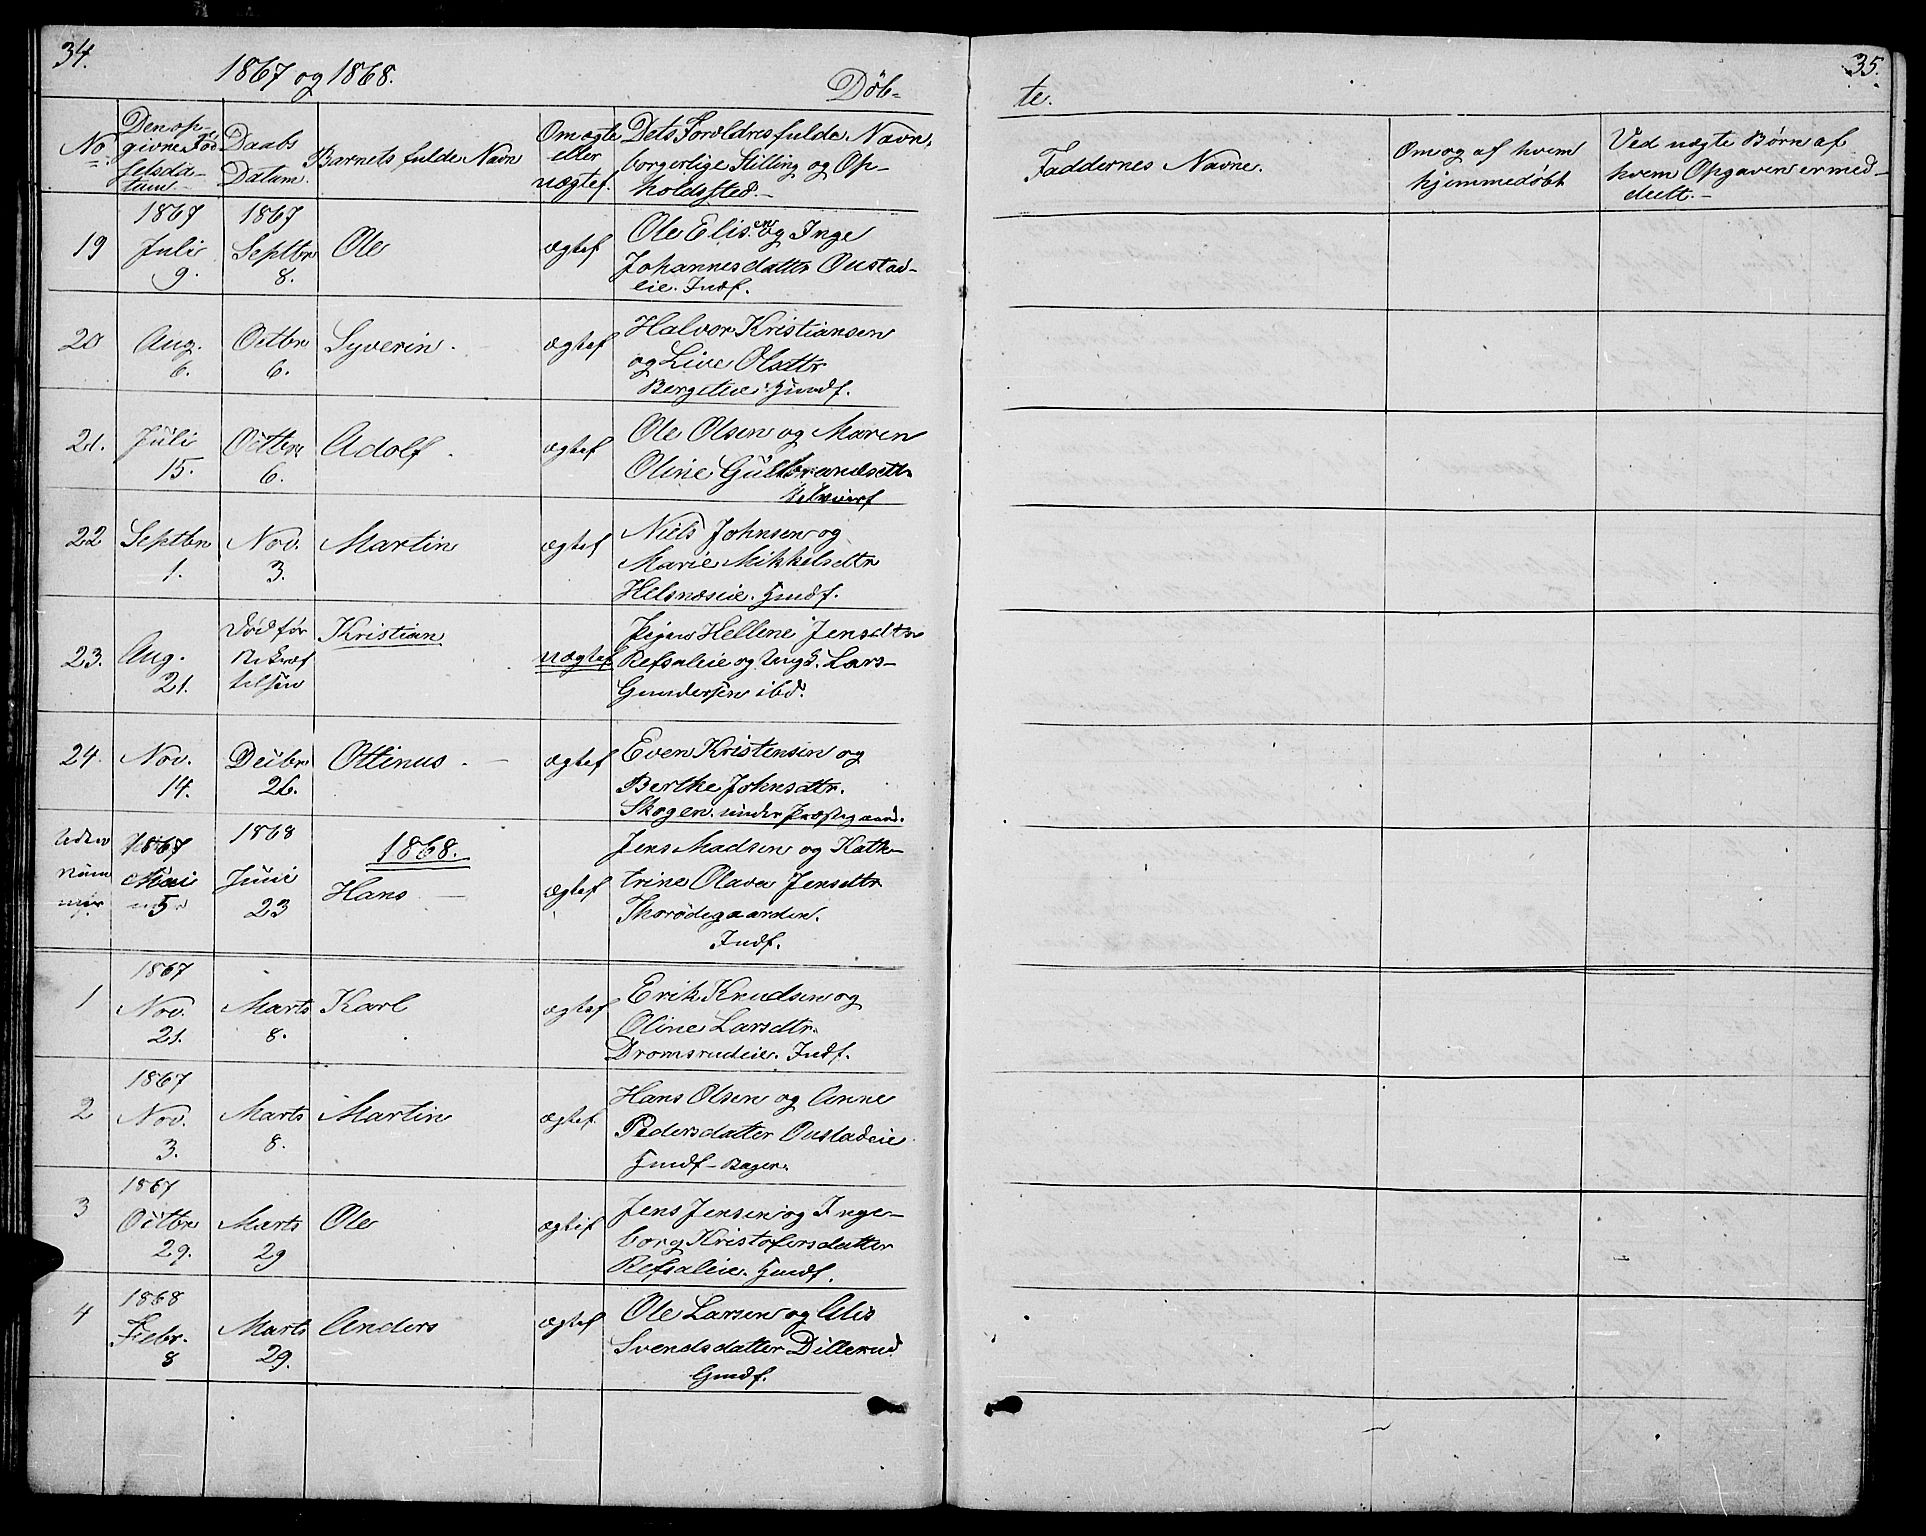 34.
1867 og 1868.
Döb-
No
Den op-
givne Föd
selsda-
tum
Daabs
Datum.
Barnets fulde Navn
Om ægte
eller
uægtef.
Dets Forældres fulde Navn,
borgerlige Stilling og Op-
holdssted.
19
1867
Juli
9.
1867
Septbr
8.
Ole
ægtef
Ole Elisen og Inge
Johannesdattr Oustad-
eie. Indf.
20
Aug.
6.
Octbr
6.
Syverin
ægtef
Halvor Kristiansen
og Live Olsdttr
Indf.
21.
Juli
15.
Octbr
6.
Adolf
ægtef
Ole Olsen og Maren
Oline Gulbrandsdttr
22
Septbr
1.
Nov.
3.
Martin
ægtef
Niels Johnsen og
Marie Mikkelsdtr
Helsnæseie. Indf.
23.
Aug.
21.
död för
Bekræf
telsen
Kristian
uægtef
Pigen Hellene Jensdtr
Refsaleie og Ungk. Lars
Gundersen ibd.
24.
Nov.
14.
Decbr
26.
Ottinus
ægtef
Even Kristensen og
Berthe Johnsdtr.
Skogen under Præstegaard.
Uden
num
mer
1867
Mai
5
1868
Juni
23
1868.
Hans
ægtef
Jens Madsen og Kath-
trine Olava Jensdtr
Thorödegaarden.
Indf.
1
1867
Nov.
21.
Marts
8.
Karl
ægtef
Erik Knudsen og
Oline Larsdtr.
Dromsrudeie. Indf.
2
1867
Nov.
3.
Marts
8.
Martin
ægtef
Hans Olsen og Anne
Pedersdatter Oustadeie
Indf - Bager.
3
1867
Octbr
29.
Marts
29
Ole
ægtef
Jens Jensen og Inge-
borg Kristofersdatter
Refsaleie. Indf.
4
1868
Febr.
8
Marts
29.
Anders
ægtef
Ole Larsen og Alis
Svendsdatter Dillerud
Indf.
35.
te.
Faddernes Navne.
Om og af hvem
hjemmedöbt
Ved uægte Börn af
hvem Opgaven er med-
deelt.